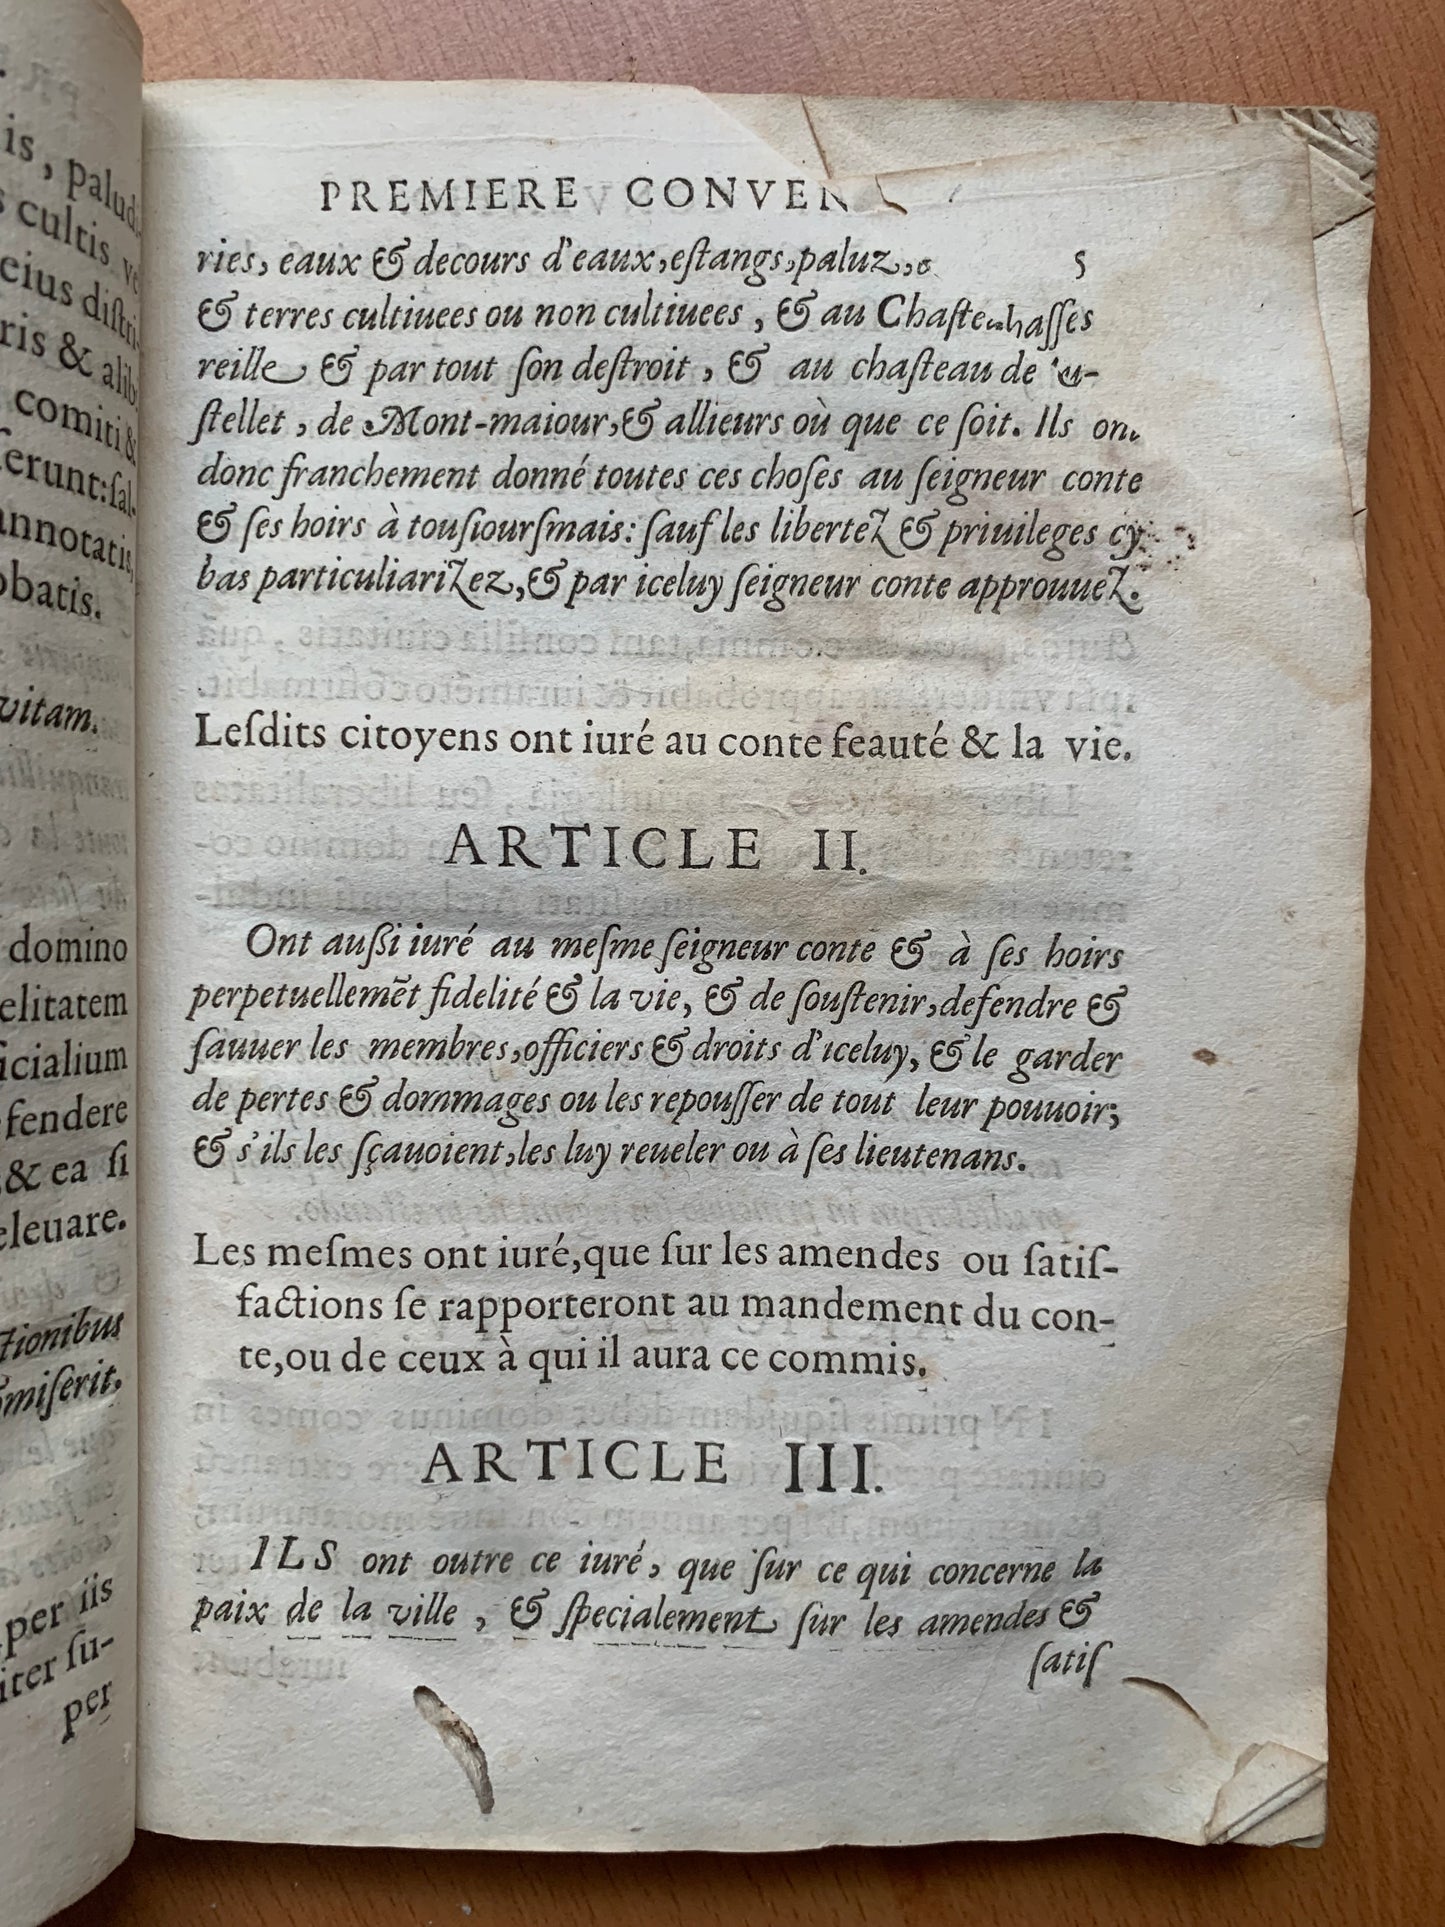 is, palud
s cultis ve
eius diſtri
ris & alib
comiti &
ſerunt: ſal-
annotatis,
obatis.
vitam.
domino
elitatem
icialium
fendere
& ea ſi
eleuare.
ctionibus
omiſerit.
per iis
iter ſu-
per
PREMIERE CONVEN
5
ries, eaux & decours d'eaux, eſtangs, paluz,
haſſes
& terres cultiuees ou non cultiuees, & au Chaſte
reille & par tout ſon deſtroit, & au chaſteau de
ſtellet, de Mont-maiour, & allieurs où que ce ſoit. Ils ont
donc franchement donné toutes ces choſes au ſeigneur conte
& ſes hoirs à touſiourſmais: ſauf les libertez & priuileges cy
bas particuliarizez, & par iceluy ſeigneur conte approuuez.
Leſdits citoyens ont iuré au conte feauté & la vie.
ARTICLE II.
Ont auſſi iuré au meſme ſeigneur conte & à ſes hoirs
perpetuellemēt fidelité & la vie, & de ſouſtenir, defendre &
ſauuer les membres, officiers & droits d'iceluy, & le garder
de pertes & dommages ou les repouſſer de tout leur pouuoir;
& s'ils les ſçauoient, les luy reueler ou à ſes lieutenans.
Les meſmes ont iuré, que ſur les amendes ou ſatiſ-
factions ſe rapporteront au mandement du con-
te, ou de ceux à qui il aura ce commis.
ARTICLE III.
ILS ont outre ce iuré, que ſur ce qui concerne la
paix de la ville, & ſpecialement ſur les amendes &
ſatiſ